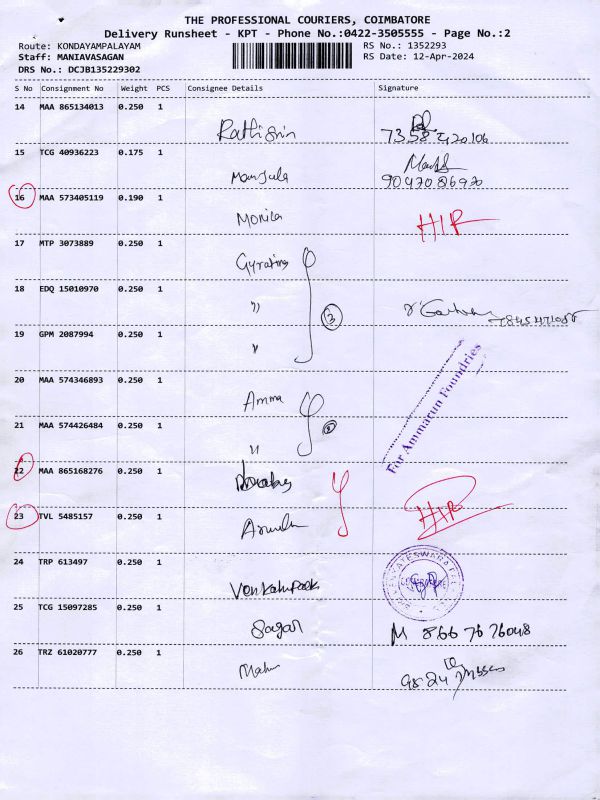 THE PROFESSIONAL COURIERS, COIMBATORE
Delivery Runsheet - KPT - Phone No.:0422-3505555 - Page No.:2
Route: KONDAYAMPALAYAM RS No.: 1352293
Staff: MANIAVASAGAN RS Date: 12-Apr-2024
DRS No.: DCJB135229302
S No Consignment No Weight PCS Consignee Details Signature
14 MAA 865134013 0.250 1
15 TCG 40936223 0.175 1
Manjula
16 MAA 573405119 0.190 1
Monica
17 MTP 3073889 0.250 1
Gyrating
18 EDQ 15010970 0.250 1
" 3
19 GPM 2087994 0.250 1
"
20 MAA 574346893 0.250 1
Amma
21 MAA 574426484 0.250 1
" 2
For Ammarun Foundries
22 MAA 865168276 0.250 1
23 TVL 5485157 0.250 1
24 TRP 613497 0.250 1
25 TCG 15097285 0.250 1
Sagar M 866 76 76048
26 TRZ 61020777 0.250 1